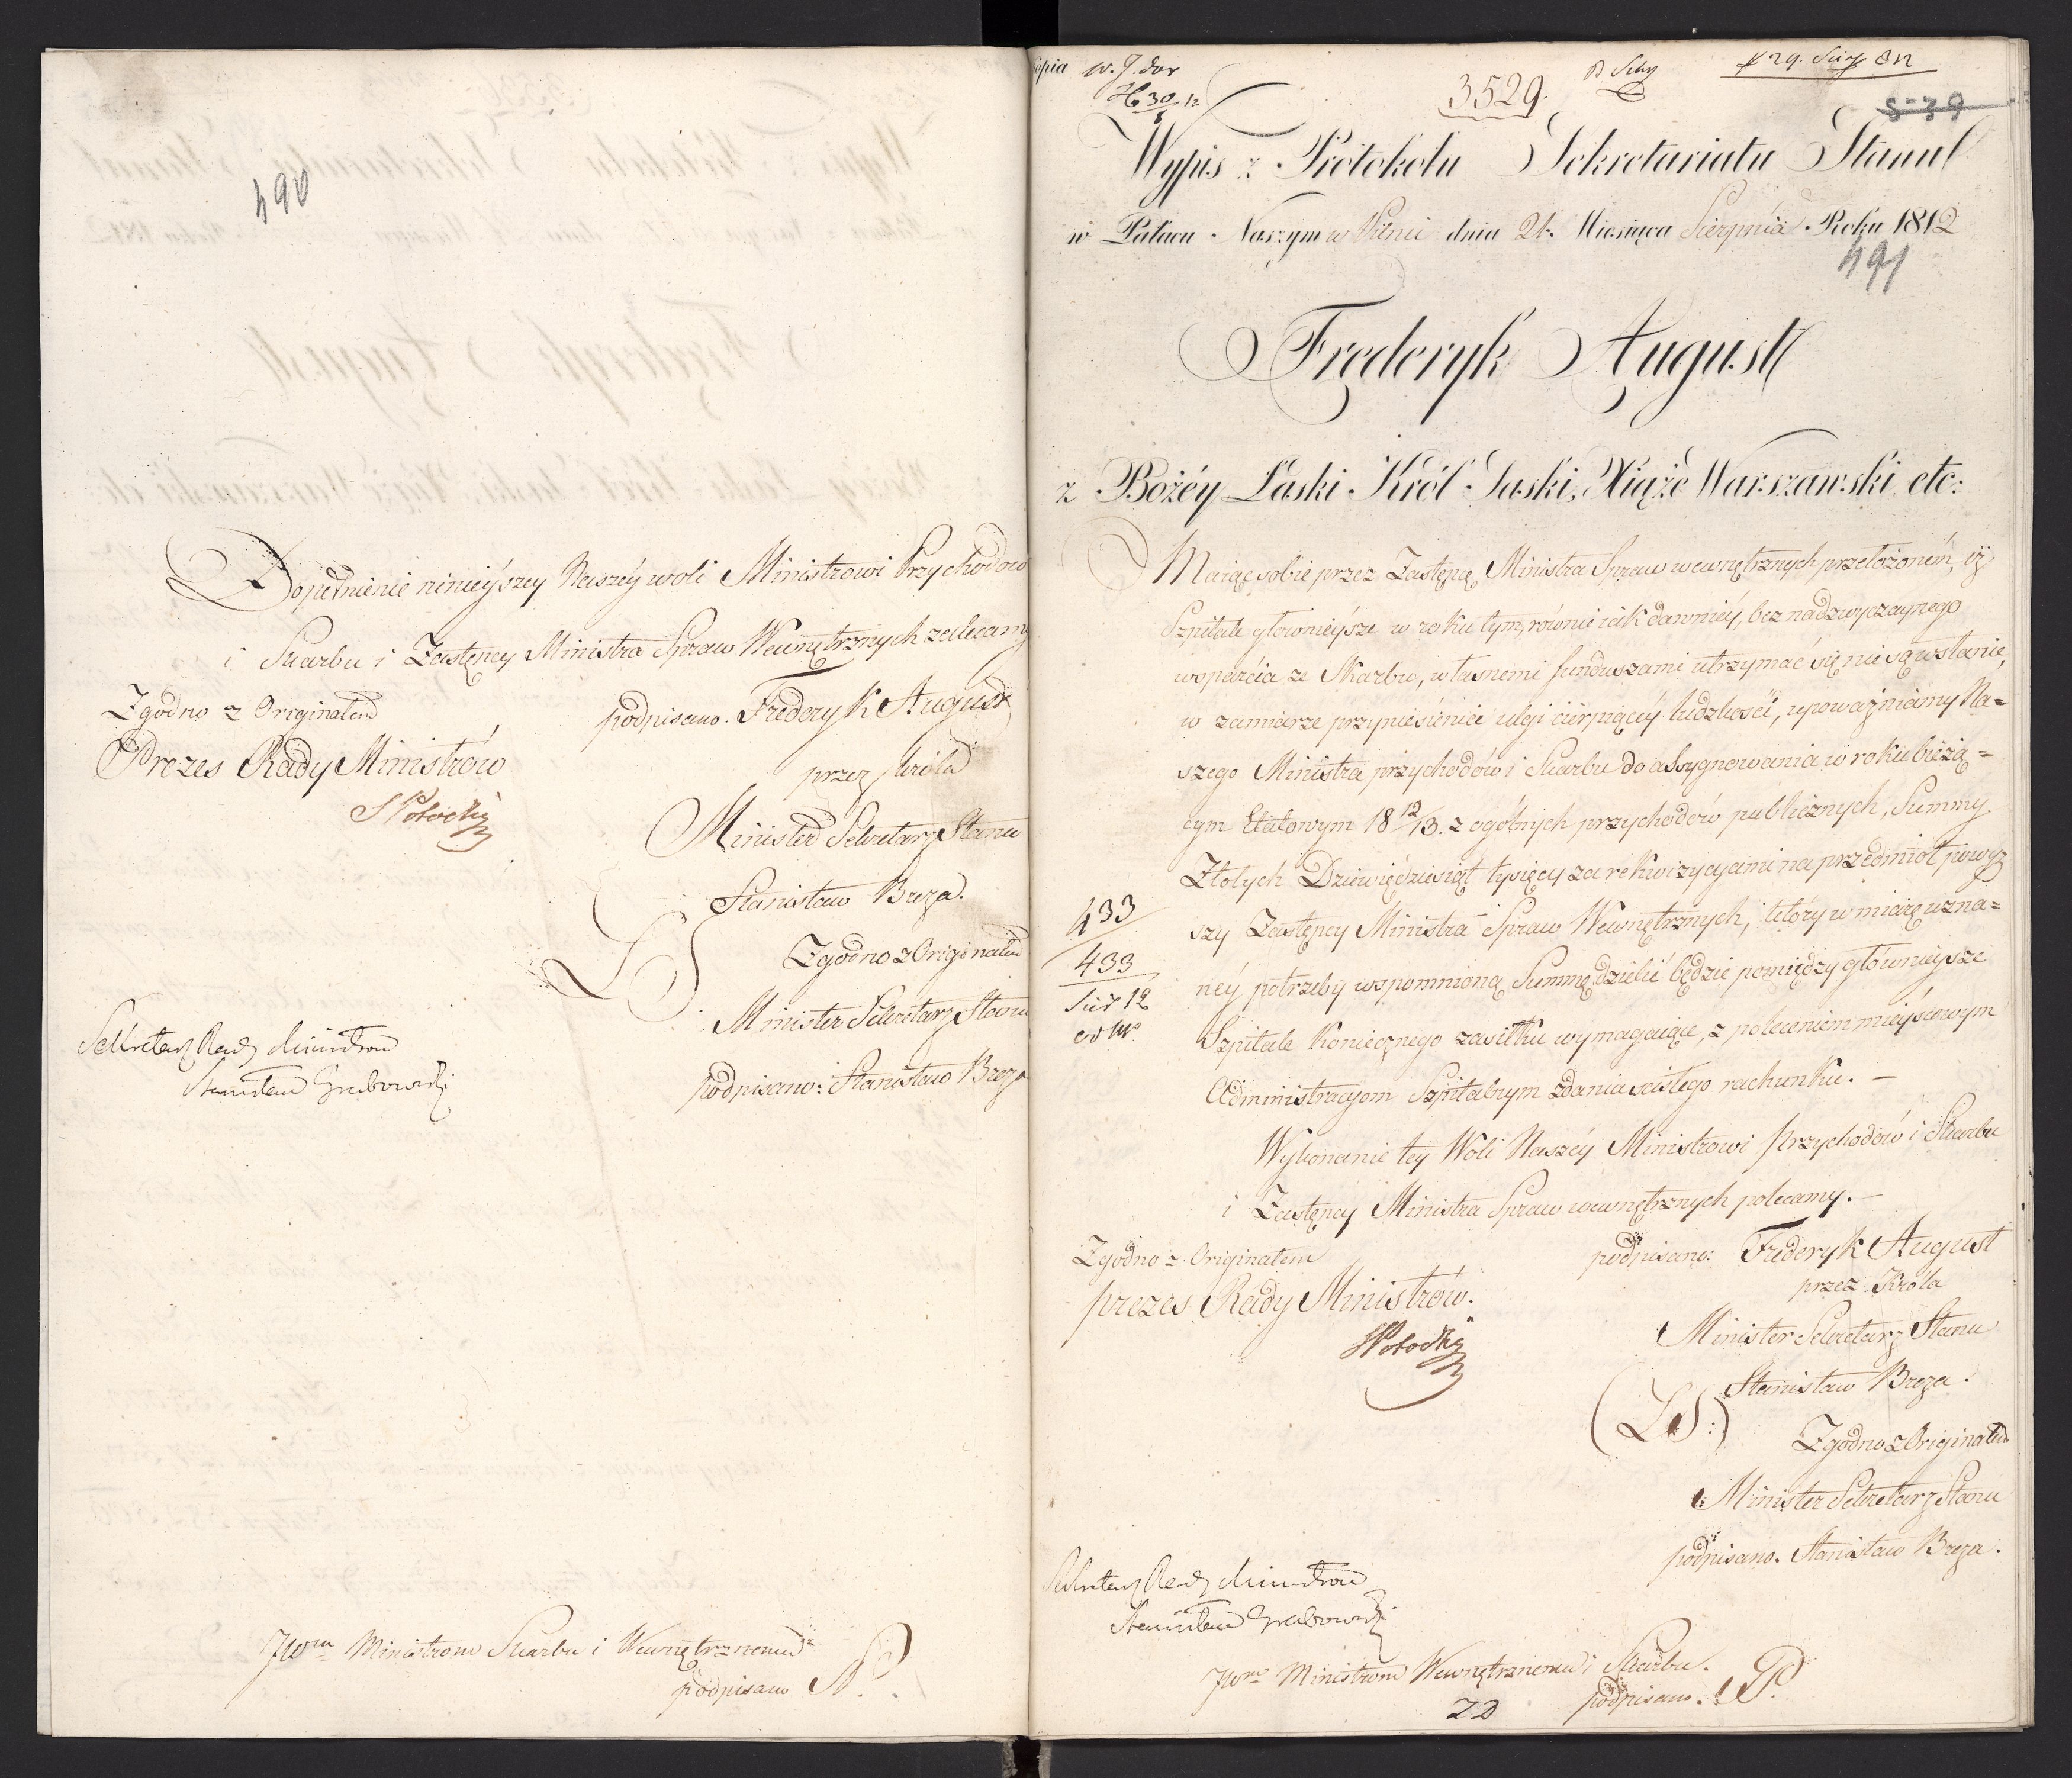 490
Dopełnienie ninieyszey Naszéy woli Ministrowi Przychodów
i Skarbu i Zastępcy Ministra Spraw Wewnętrznych zalecamy
Zgodno z Originałem
podpisano. Frederyk August
Prezes Rady Ministrów
przez Króla
SPotocki
Minister Sekretarz Stanu
Stanisław Breza.
LS
Zgodno z Originałem
Minister Sekretarz Stanu
podpisano: Stanisław Breza
Sekretarz Rady Ministrów
Stanisław Grabowski
JWm Ministrom Skarbu i Wewnętrznemu
podpisano P.
w. J. dar
3529.
29. Sierp 812
30/8 12
Wypis z Protokołu Sekretariatu Stanu
w Pałacu Naszym w Pilnic dnia 21. Miesiąca Sierpnia Roku 1812
491
Frederyk August
z Bożéy Łaski Król Saski, Xiąże Warszawski etc:
Maiąc sobie przez Zastępcę Ministra Spraw wewnętrznych przełożoném, iż
Szpitale głównieysze w roku tym, równie iak dawniéy, bez nadzwyczaynego
wsparcia ze Skarbu, własnemi funduszami utrzymać się nie są w stanie,
w zamiarze przyniesienia ulgi cierpiącéy ludzkości, upoważniamy Na=
szego Ministra przychodów i Skarbu do assygnowania w roku bieżą=
cym Etatowym 18 12/13. z ogólnych przychodów publicznych, Summy
Złotych Dziewięćdziesiąt tysięcy za rekwizycyami na przedmiot powyż
szy Zastępcy Ministra Spraw Wewnętrznych, który w miarę uzna=
néy potrzeby wspomnioną Summę dzielić będzie pomiędzy głównieysze
Szpitale koniecznego zasiłku wymagaiące, z poleceniem mieyscowym
Administracyom Szpitalnym zdania ścisłego rachunku. –
433
433
Sier 12
Wykonanie tey Woli Naszéy Ministrowi Przychodów i Skarbu
i Zastępcy Ministra Spraw wewnętrznych polecamy. –
Zgodno z Originałem
podpisano: Frederyk August
przez Króla
prezes Rady Ministrów.
SPotocki
Minister Sekretarz Stanu
Stanisław Breza.
(LS:)
Zgodno z Originałem
Minister Sekretarz Stanu
podpisano. Stanisław Breza.
Sekretarz Rady Ministrów
Stanisław Grabowski
JWm Ministrom Wewnętrznemu i Skarbu.
podpisano. P.